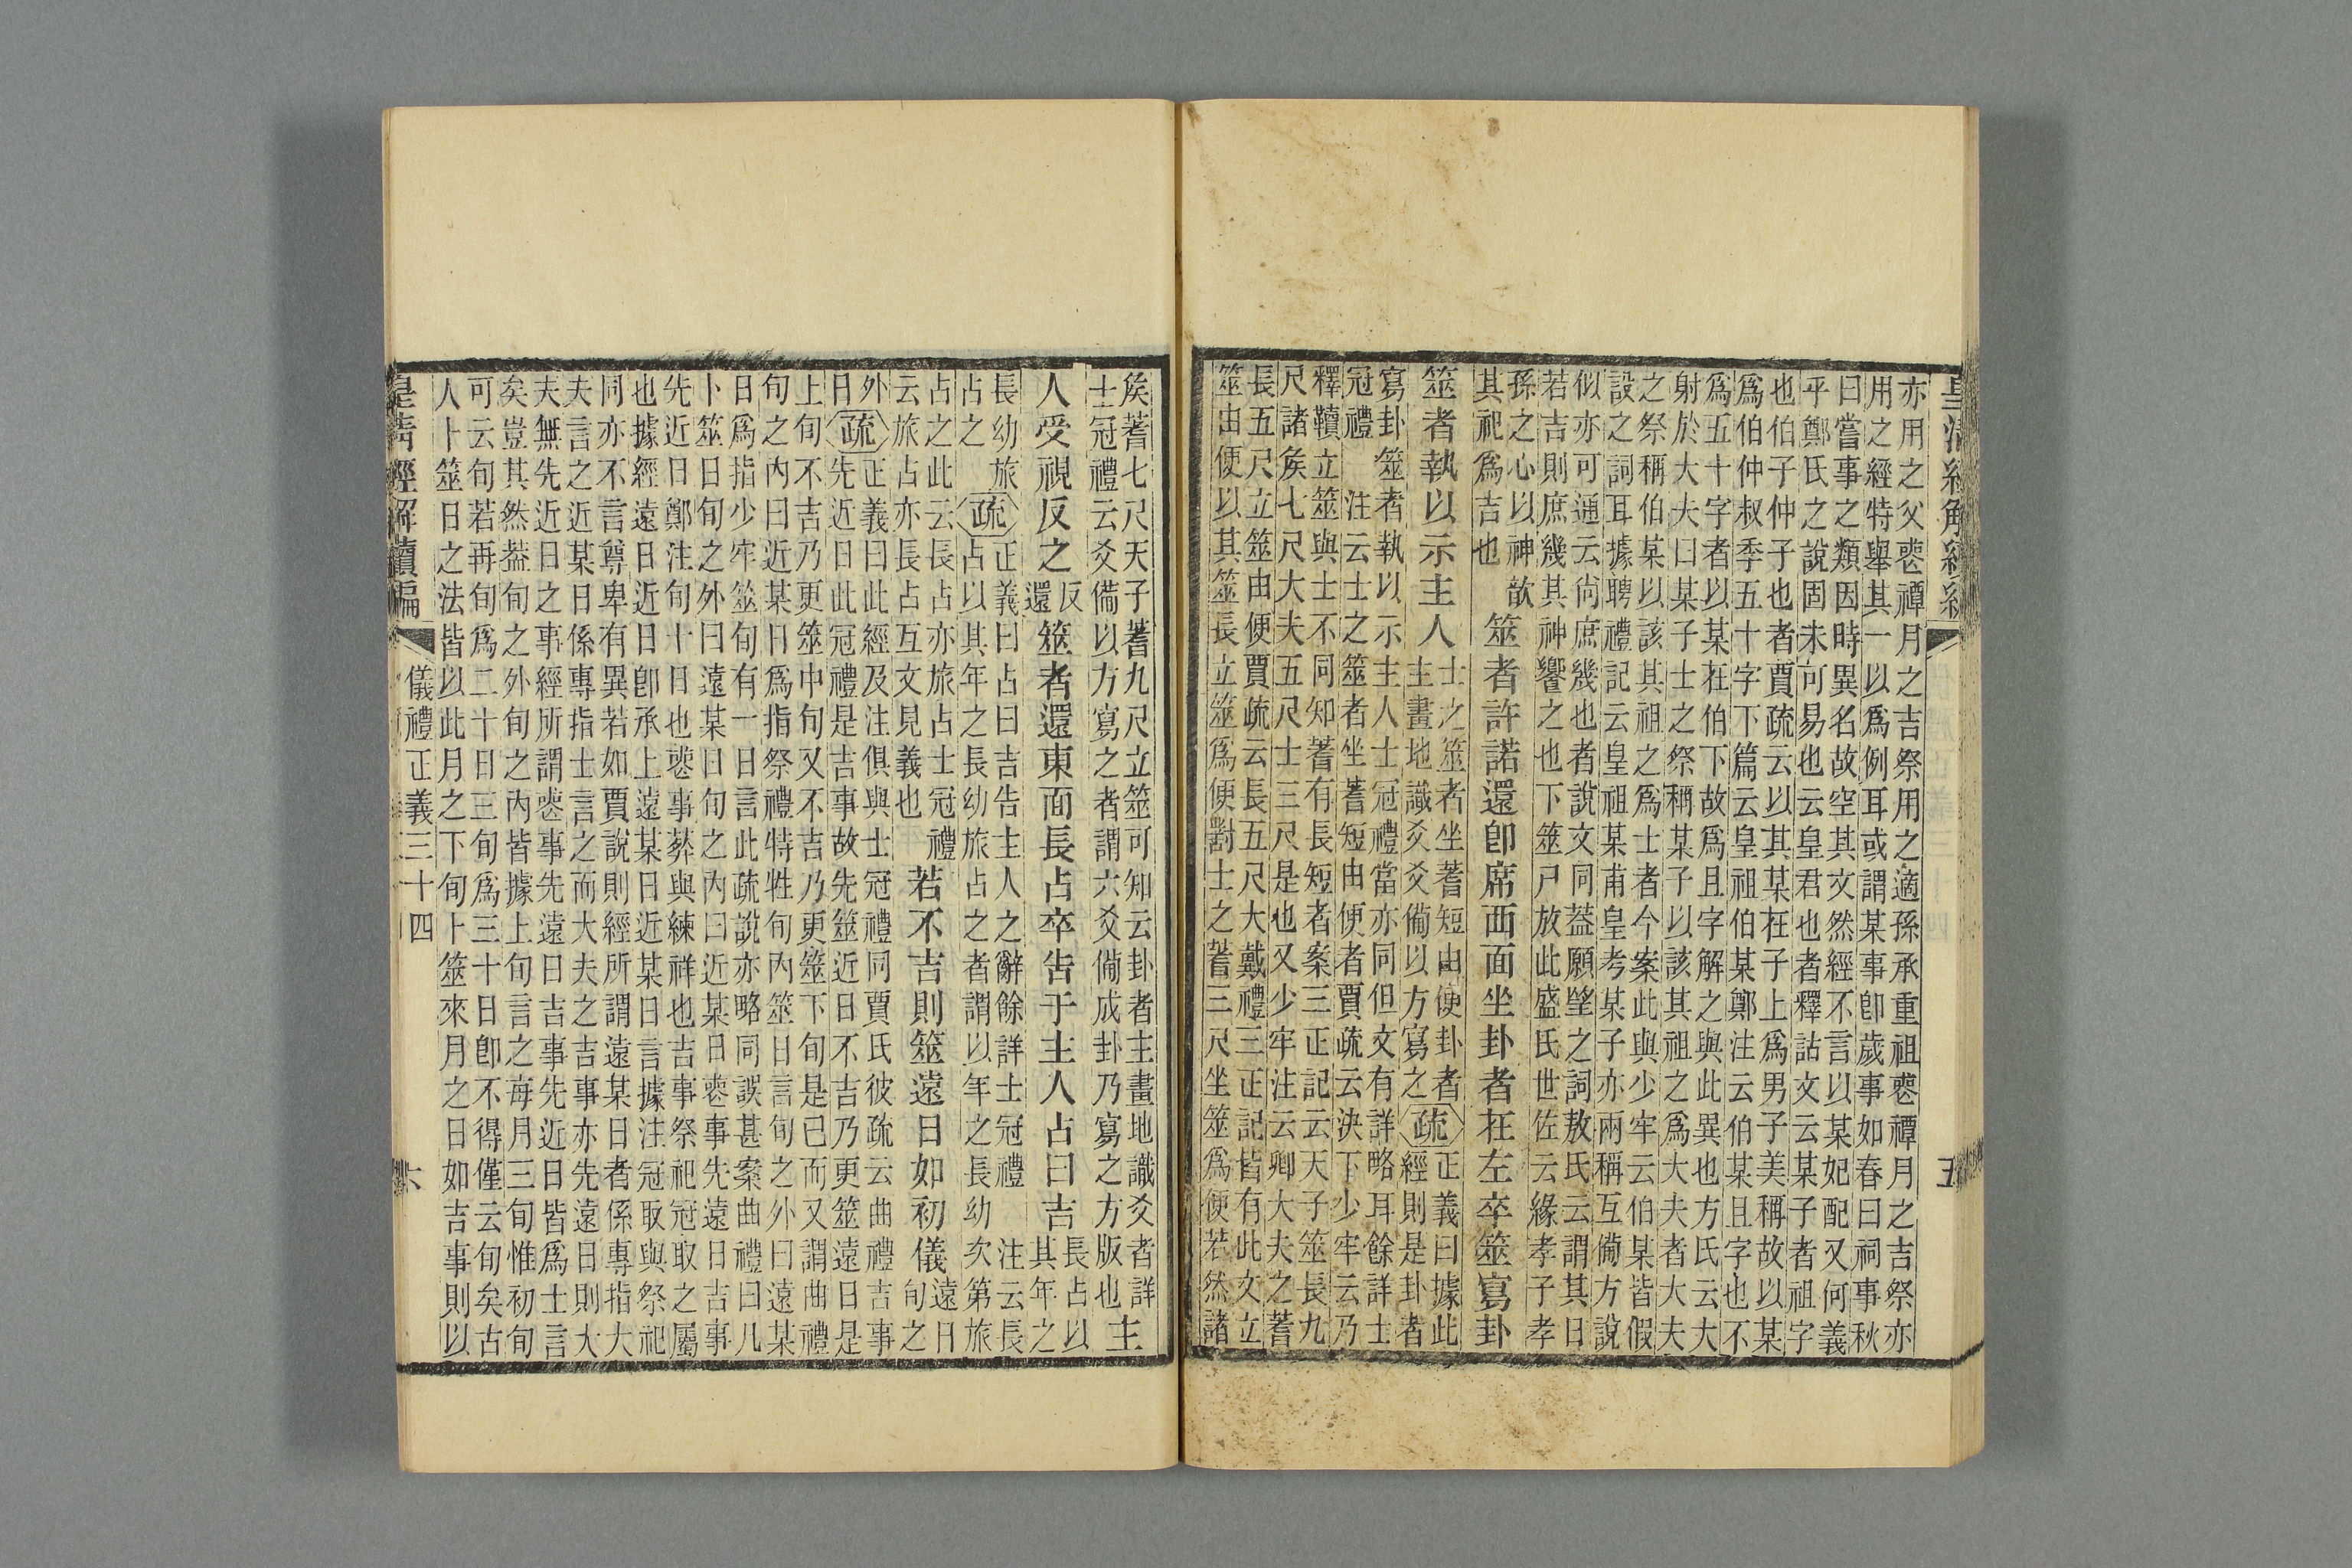 皇清經解續編
五
亦用之父䘮禫月之吉祭用之適孫承重祖䘮禫月之吉祭亦
用之經特舉其一以爲例耳或謂某事卽歲事如春曰祠事秋
曰嘗事之類因時異名故空其文然經不言以某妃配又何義
乎鄭氏之說固未可易也云皇君也者釋詁文云某子者祖字
也伯子仲子也者賈疏云以其某在子上爲男子美稱故以某
爲伯仲叔季五十字下篇云皇祖伯某鄭注云伯某且字也不
爲五十字者以某在伯下故爲且字解之與此異也方氏云大
射於大夫曰某子士之祭稱某子以該其祖之爲大夫者大夫
之祭稱伯某以該其祖之爲士者今案此與少牢云伯某皆假
設之詞耳據聘禮記云皇祖某甫皇考某子亦兩稱互備方說
似亦可通云尚庶幾也者說文同葢願望之詞敖氏云謂其日
若吉則庶幾其神饗之也下筮尸放此盛氏世佐云緣孝子孝
孫之心以神歆
其祀爲吉也
筮者許諾還卽席西面坐卦者在左卒筮寫卦
筮者執以示主人
士之筮者坐蓍短由便卦者
主畫地識爻爻備以方寫之
疏
正義曰據此
經則是卦者
寫卦筮者執以示主人士冠禮當亦同但文有詳略耳餘詳士
冠禮　注云士之筮者坐蓍短由便者賈疏云決下少牢云乃
釋韇立筮與士不同知蓍有長短者案三正記云天子筮長九
尺諸矦七尺大夫五尺士三尺是也又少牢注云卿大夫之蓍
長五尺立筮由便賈疏云長五尺大戴禮三正記皆有此文立
筮由便以其筮長立筮爲便對士之蓍三尺坐筮爲便若然諸
矦蓍七尺天子蓍九尺立筮可知云卦者主畫地識爻者詳
士冠禮云爻備以方寫之者謂六爻備成卦乃寫之方版也
主
人受視反之
反
還
筮者還東面長占卒告于主人占曰吉
長占以
其年之
長幼旅
占之
疏
正義曰占曰吉告主人之辭餘詳士冠禮　注云長
占以其年之長幼旅占之者謂以年之長幼次第旅
占之此云長占亦旅占士冠禮
云旅占亦長占互文見義也
若不吉則筮遠日如初儀
遠日
旬之
外
日
疏
正義曰此經及注俱與士冠禮同賈氏彼疏云曲禮吉事
先近日此冠禮是吉事故先筮近日不吉乃更筮遠日是
上旬不吉乃更筮中旬又不吉乃更筮下旬是已而又謂曲禮
旬之內曰近某日爲指祭禮特牲旬內筮日言旬之外曰遠某
日爲指少牢筮旬有一日言此疏說亦略同誤甚案曲禮曰凡
卜筮日旬之外曰遠某日旬之內曰近某日䘮事先遠日吉事
先近日鄭注旬十日也䘮事葬與練祥也吉事祭祀冠取之屬
也據經遠日近日卽承上遠某日近某日言據注冠取與祭祀
同亦不言尊卑有異若如賈說則經所謂遠某日者係專指大
夫言之近某日係專指士言之而大夫之吉事亦先遠日則大
夫無先近日之事經所謂䘮事先遠日吉事先近日皆爲士言
矣豈其然葢旬之外旬之內皆據上旬言之每月三旬惟初旬
可云旬若再旬爲二十日三旬爲三十日卽不得僅云旬矣古
人卜筮日之法皆以此月之下旬卜筮來月之日如吉事則以
皇清經解續編
儀禮正義三十四
六